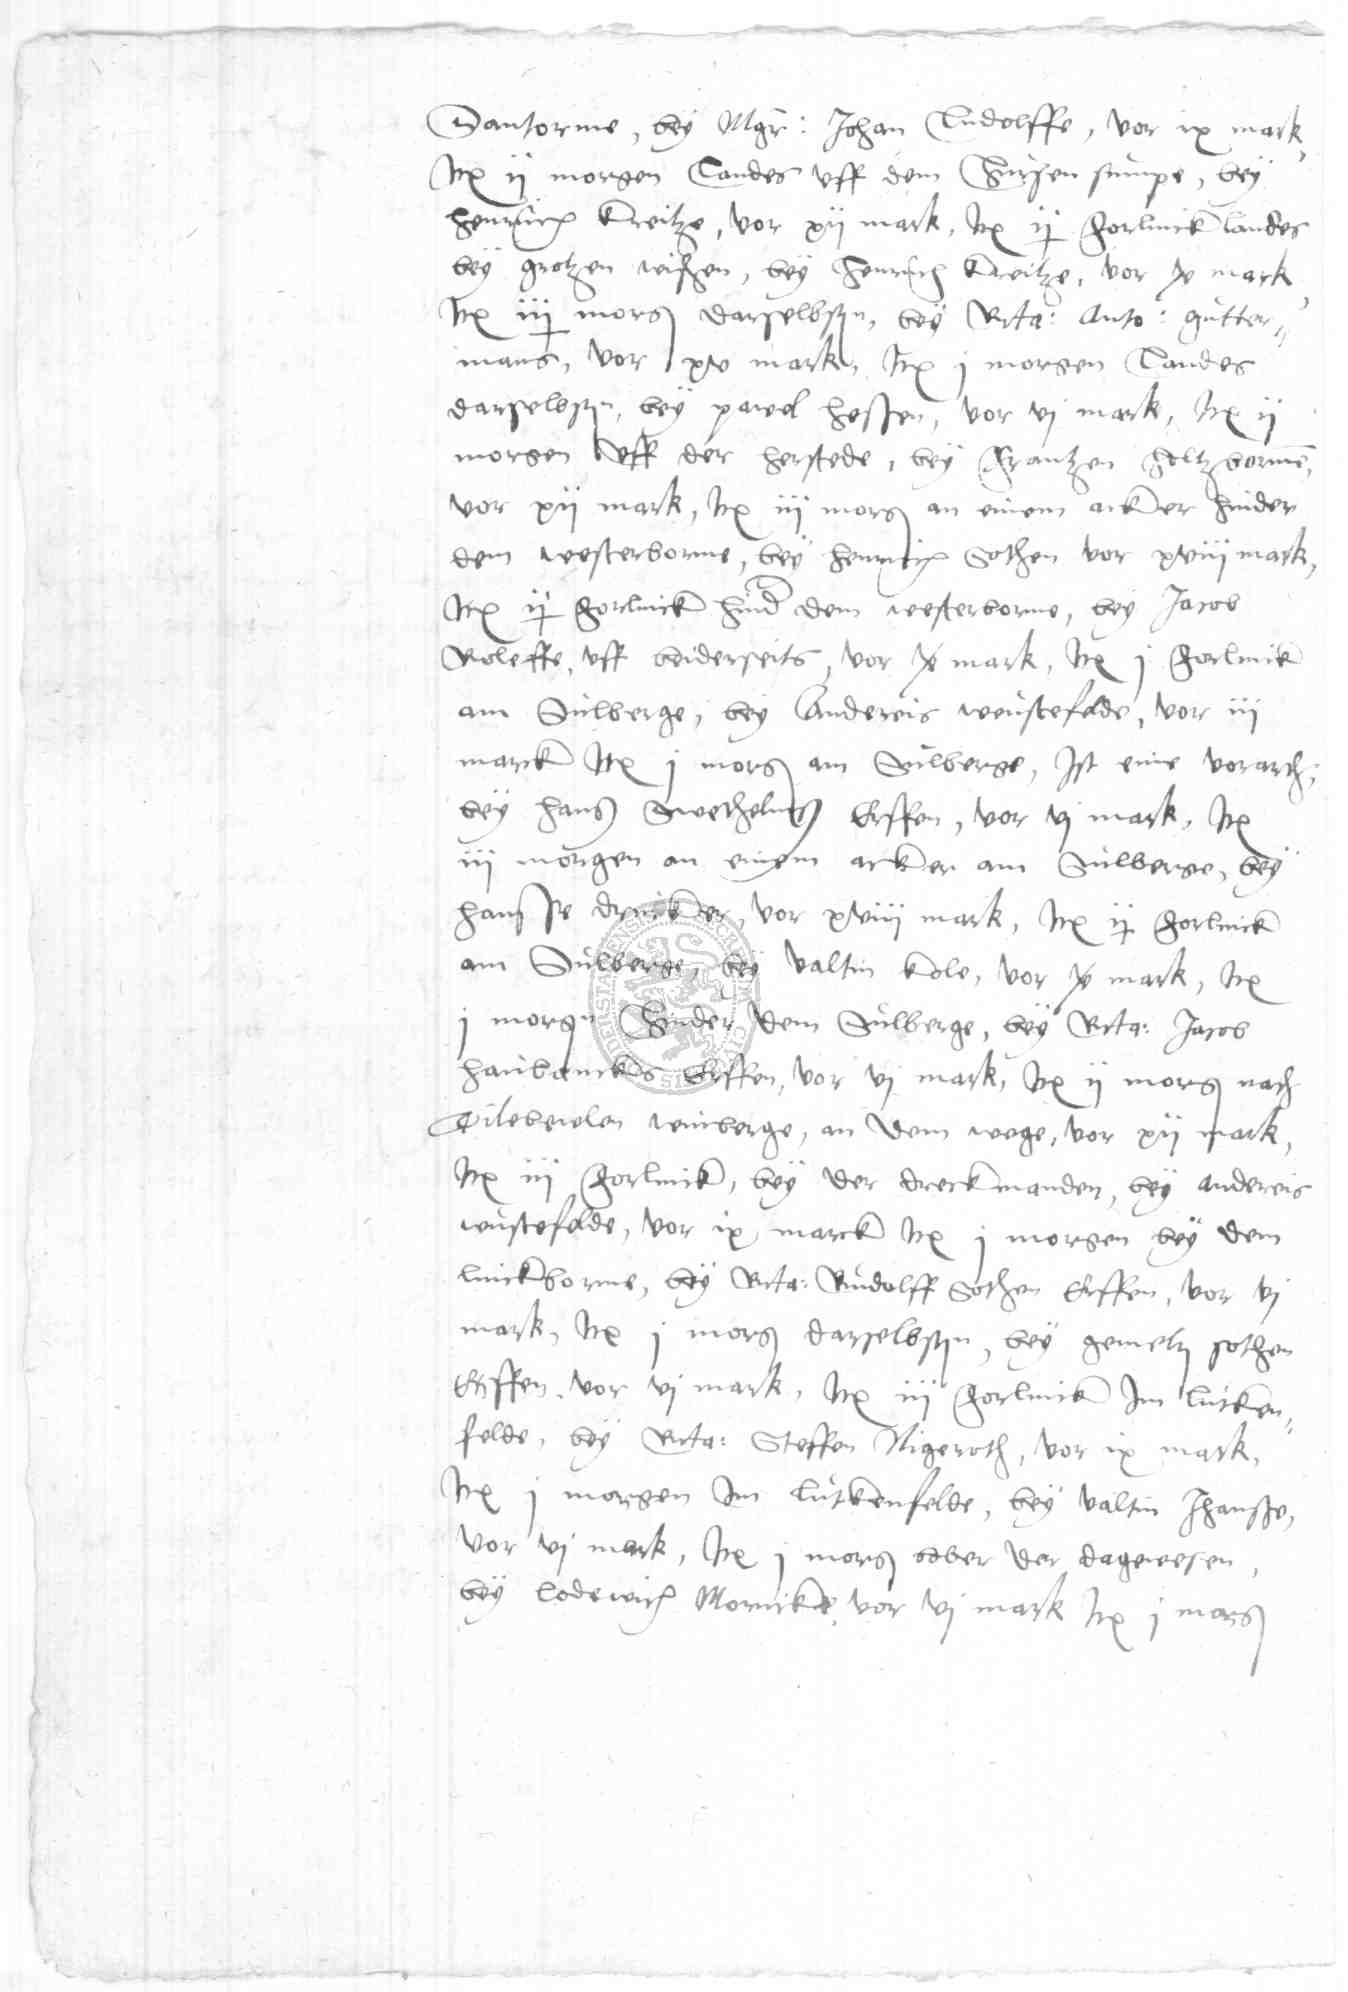 Santorme, bey Mgr: Johan Ludolffe, vor ix mark,
Itē ij morgen Landes uff dem Hirsen sumpe, bey
henrich Kreitze, vor xij mark, Itē ij forlinck landes
bey grotzen wisken, bey henrich Kreitze, vor x mark,
Itē iij morg darselbstn, bey Vita: Anto: gutter=
mans, vor xv mark, Itē j morgen Landes
darselbstn, bey pawel hessen, vor vj mark, Itē ij
morgen uff der herstede, bey Frantzen Holtzbornē,
vor xij mark, Itē iij morg an einem acker hinder
dem westerborne, bey henrich Sothen vor xviij mark,
Itē ij forlinck hind dem westerborne, bey Jacob
Roleffe, uff beiderseits, vor x mark, Itē j forlinck
am Sulberge, bey Andereis weustefelde, vor iij
marck Itē j morg am Sulberge, Ist eine vorarth,
bey hans Swethelms Erffen, vor vj mark, Itē
iij morgen an einem acker am Sulberge, bey
hansse drucker, vor xviij mark, Itē ij forlinck
am Sulberge, bey valtin Kole, vor x mark, Itē
j morgn Hinder dem Sulberge, bey Vita: Jacob
hanbancks Erffen, vor vj mark, Itē ij morg nach
Tilebeielen winberge, an dem wege, vor xij mark,
Itē iij forlinck, bey der dreckmanden, bey andereis
wustefelde, vor ix marck Itē j morgen bey dem
linckborne, bey Vita: Rudolff Sothen Erffen, vor vj
mark, Itē j morg darselbstn, bey gemeltn sothen
Erffen, vor vj mark, Itē iij forlinck Im lutken=
felde, bey Vita: Steffen Nigeroth, vor ix mark,
Itē j morgen Im lutkenfelde, bey valtin Jhansse,
vor vj mark, Itē j morg obber der dagewesen,
bey lodewich Mornicke, vor vj mark Itē j morg